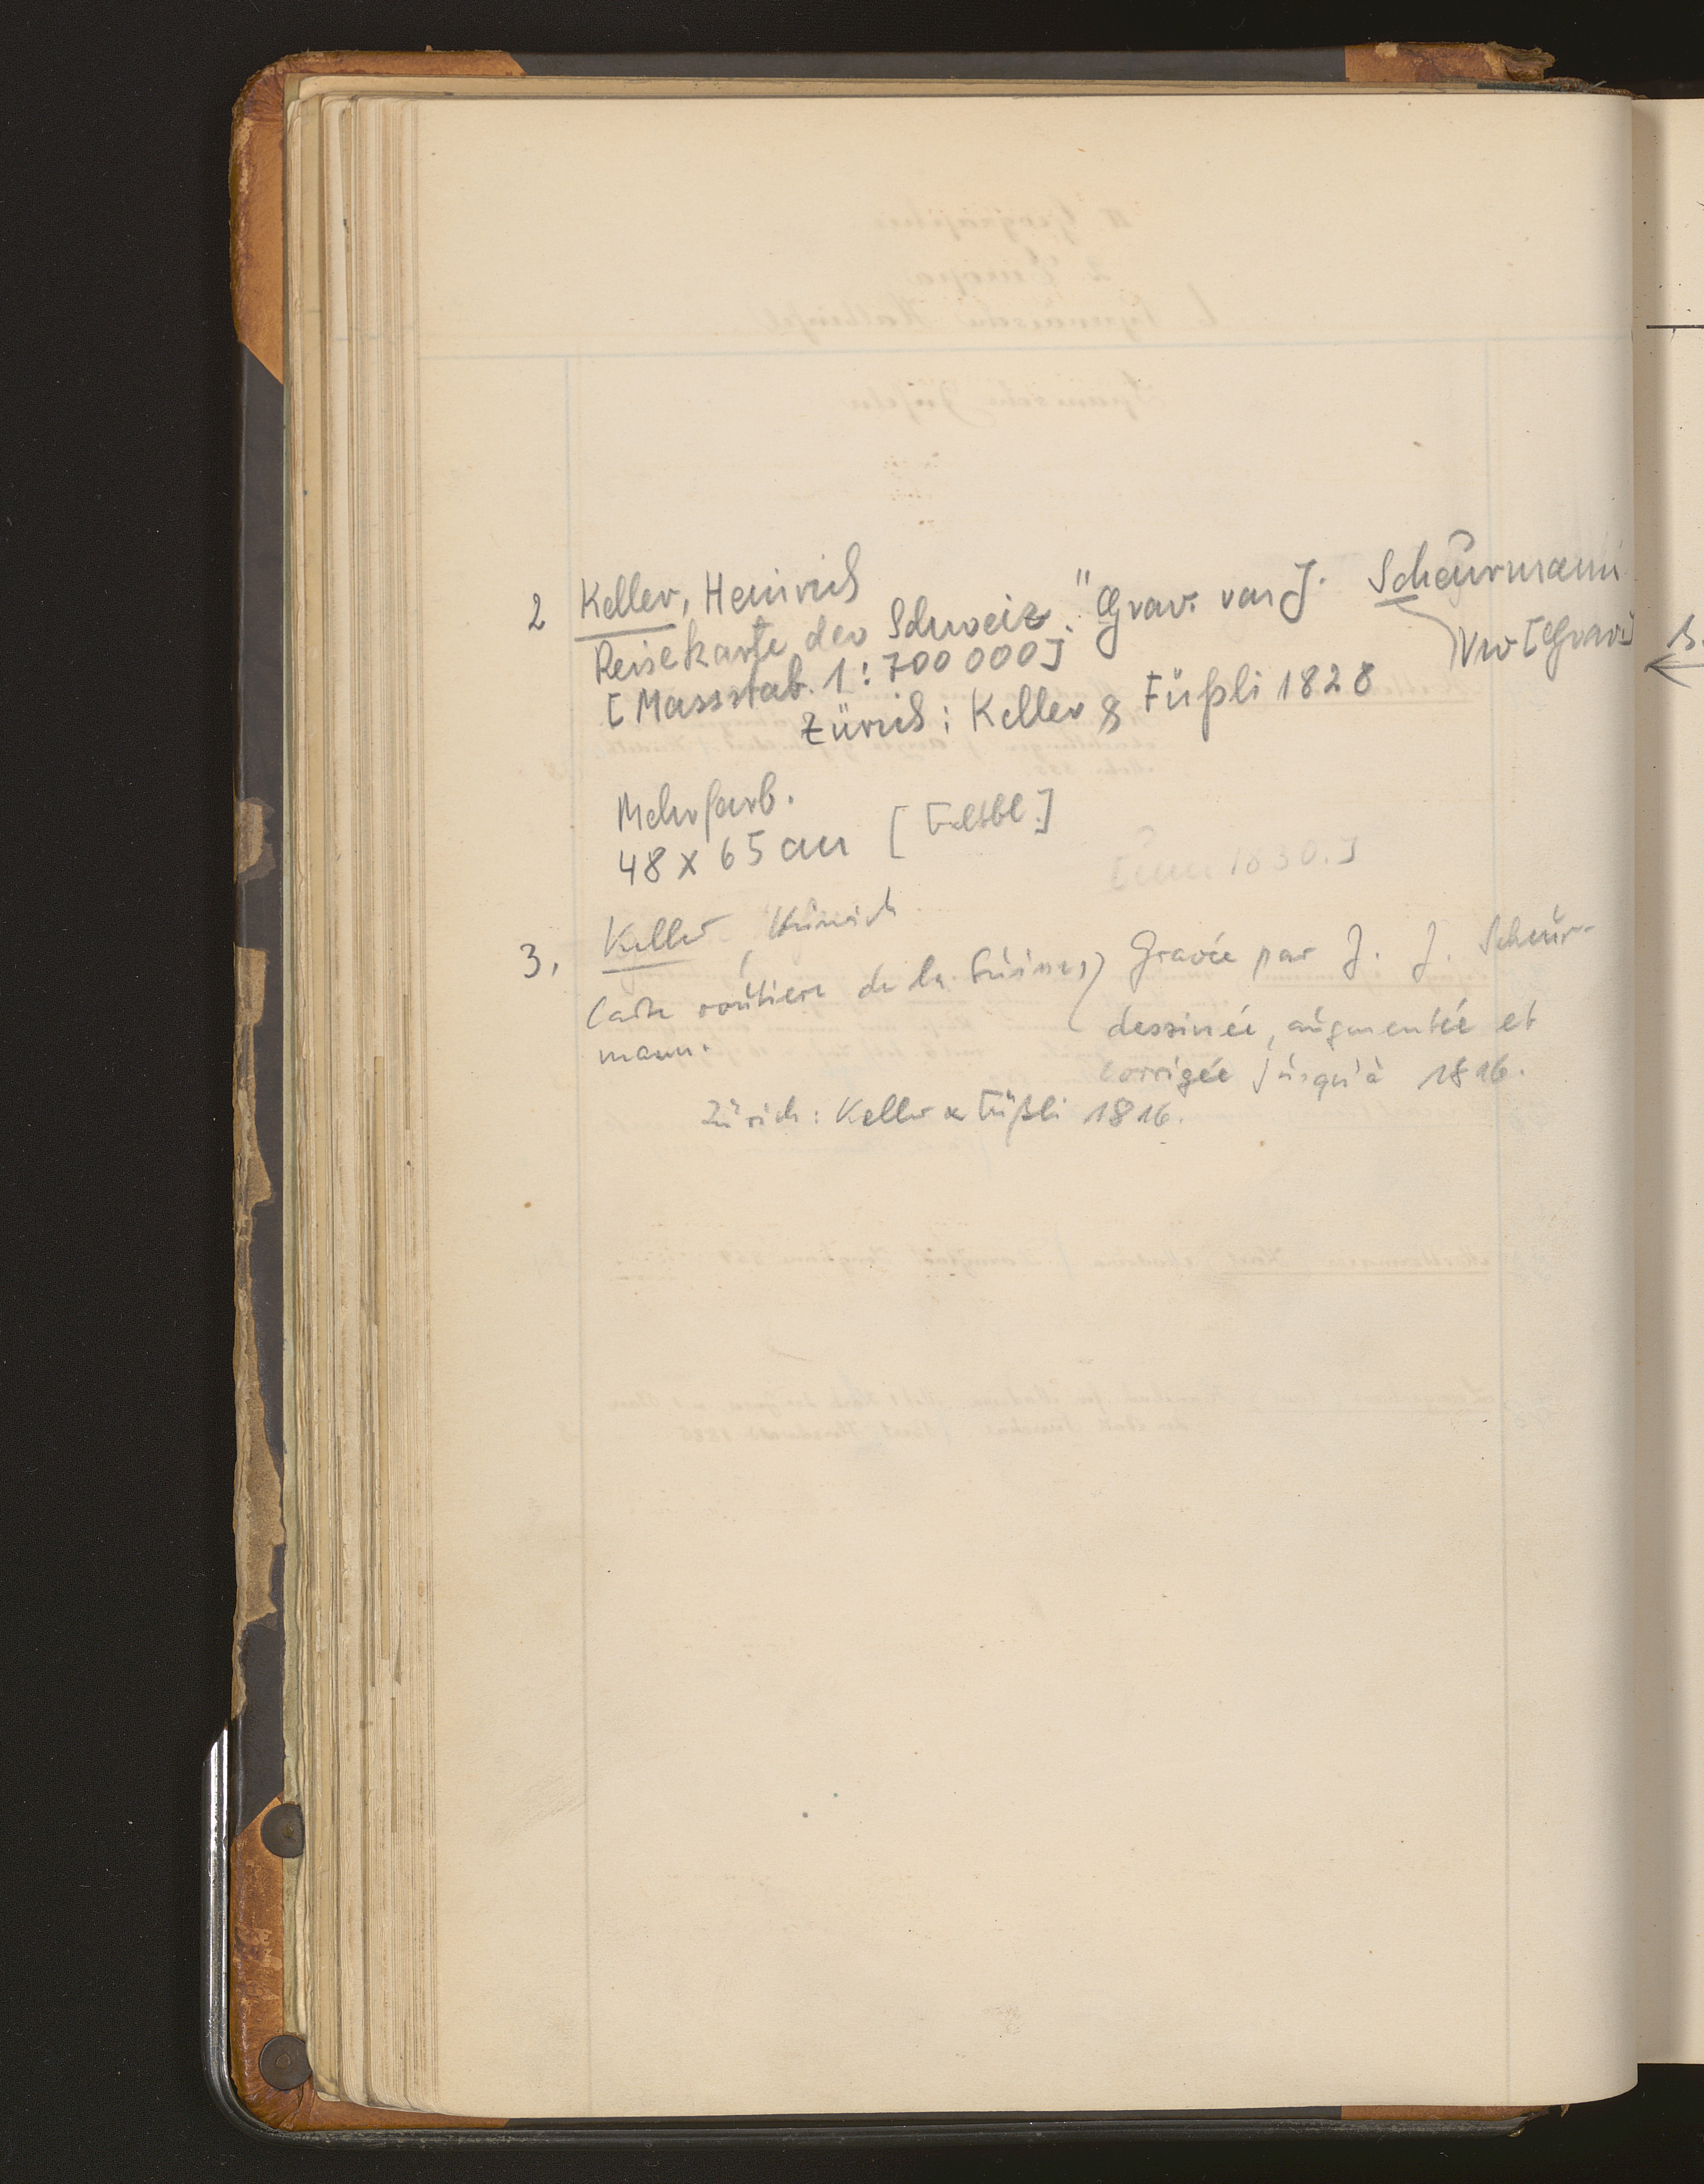 2 Keller, Heinrich
Reisekarte der Schweiz. Grav. von J. Scheurmann
Vw [Grav.]
[Massstab. 1:700 000]
Zürich: Keller & Füßli 1828
Mehrfarb.
48 x 65 cm [Faltbl.]
1830.]
3. Keller, Heinrich
Carte routiere de la Suisse, Gravée par J. J. Scheur-
mann.
dessinée, augmentée et
corrigée jusqu'à 1816.
Zürich: Keller & Füßli 1816.